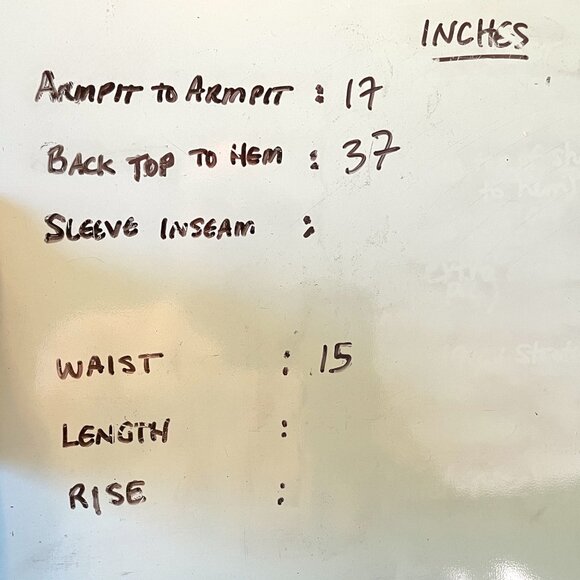 INCHES
ARMPIT TO ARMPIT : 17
BACK TOP TO HEM : 37
SLEEVE INSEAM :
WAIST : 15
LENGTH :
RISE :